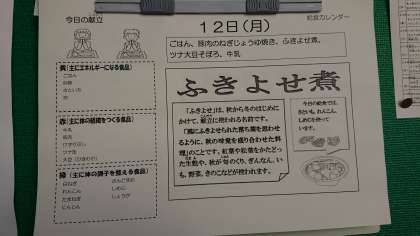 今日の献立
給食カレンダー
12日(月)
ごはん、豚肉のねぎじょうゆ焼き、ふきよせ煮、
ツナ大豆そぼろ、牛乳
黄(主にエネルギーになる食品)
ごはん
砂糖
さといも
油
赤(主に体の組織をつくる食品)
牛乳
豚肉
ツナ缶
緑(主に体の調子を整える食品)
白ねぎ
れんこん
たまねぎ
にんじん
しめじ
しょうが
ふきよせ煮
「ふきよせ」は、秋から冬のはじめに
かけて、献立に使われる名前です。
「風にふきよせられた落ち葉を思わせ
るように、秋の味覚を盛り合わせた料
理」のことです。紅葉や松葉をかたどっ
た生麩や、秋が旬のくり、ぎんなん、い
も、野菜、きのこなどが使われます。
今日の給食では、